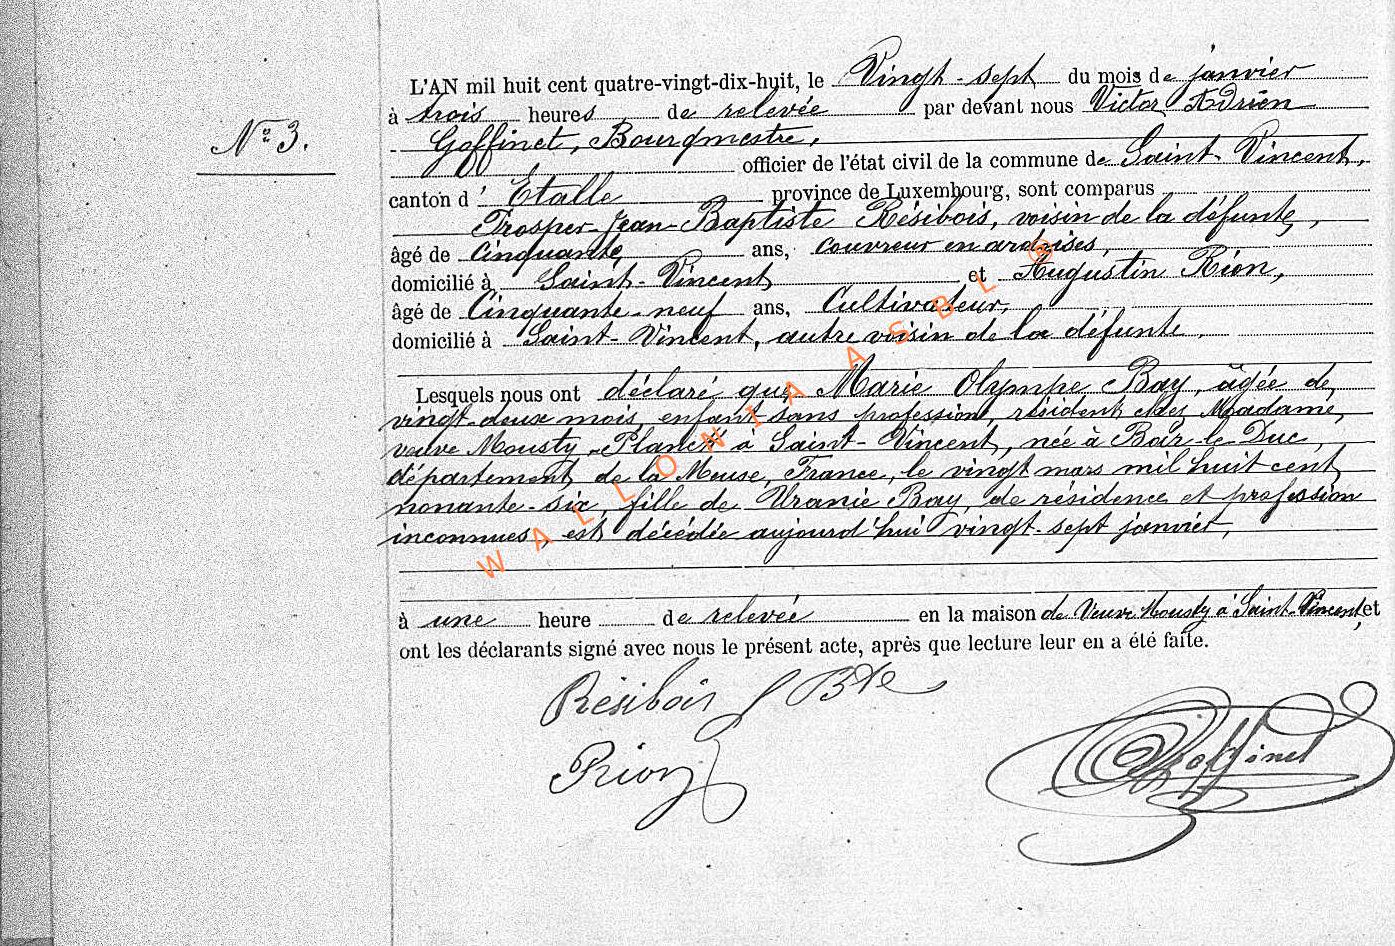 L'AN mil huit cent quatre-vingt-dix-huit, le Vingt-sept du mois de janvier
à trois heures de relevée par devant nous Victor Adrien
N° 3.
Goffinet, Bourgmestre,
officier de l'état civil de la commune de Saint-Vincent,
canton d'Etalle province de Luxembourg, sont comparus
Prosper-Jean-Baptiste Résibois, voisin de la défunte,
âgé de cinquante ans, couvreur en ardoises,
domicilié à Saint-Vincent et Augustin Rion,
âgé de Cinquante-neuf ans, Cultivateur,
domicilié à Saint-Vincent, autre voisin de la défunte,
Lesquels nous ont déclaré que Marie Olympe Bay, âgée de
vingt-deux mois, enfant sans profession, résident chez Madame,
veuve Mousty-Planck à Saint-Vincent, née à Bar-le-Duc,
département de la Meuse, France, le vingt mars mil huit cent
nonante-six, fille de Uranie Bay, de résidence et profession
inconnues, est décédée aujourd'hui vingt-sept janvier,
à une heure de relevée en la maison de Veuve Mousty à Saint-Vincent, et
ont les déclarants signé avec nous le présent acte, après que lecture leur en a été faite.
Résibois J Bte
Rion
Goffinet
WALLONIA ASBL ®